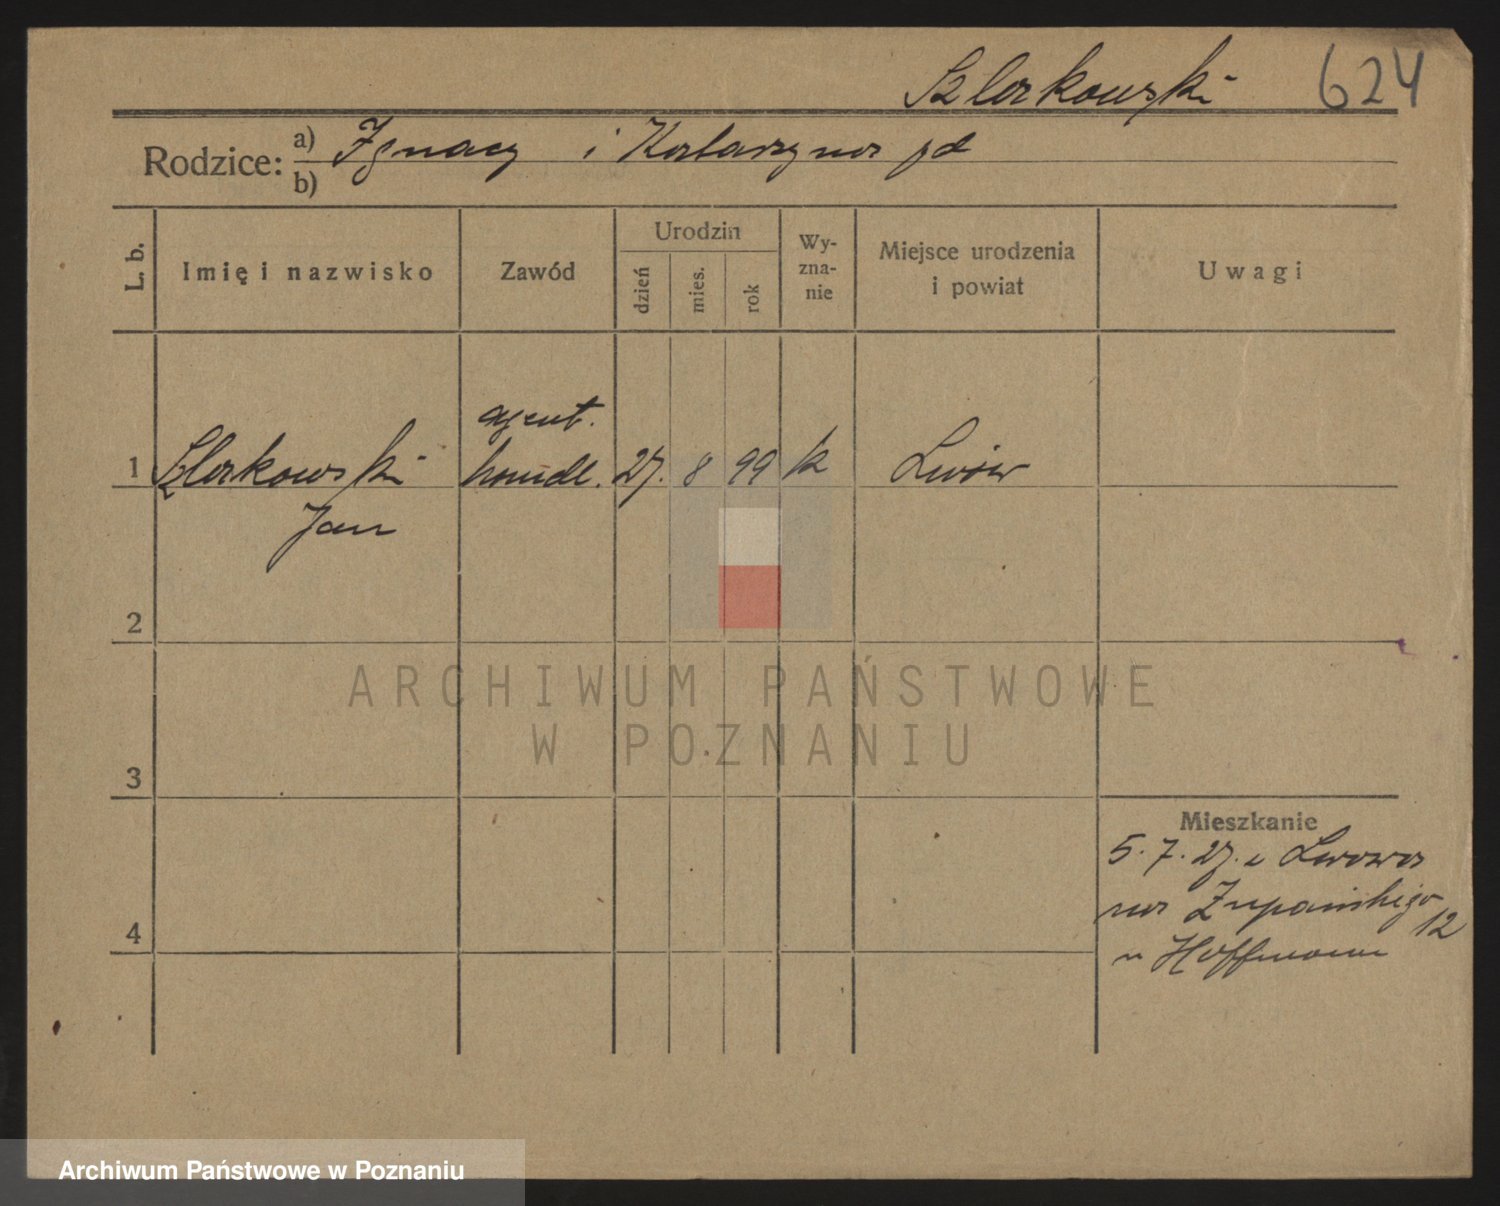 Szlakowski 624
Rodzice: a) Ignacy i Katarzyna
b)
L. b.
Imię i nazwisko
Zawód
Urodzin
dzień
mies.
rok
Wy-
zna-
nie
Miejsce urodzenia
i powiat
Uwagi
agent.
1 Szlakowski handl. 27. 8 99 k Lwów
Jan
2
3
4
Mieszkanie
5.7.27. z Lwowa
na Żupańskiego 12
u Hoffmann
ARCHIWUM PAŃSTWOWE
W POZNANIU
Archiwum Państwowe w Poznaniu